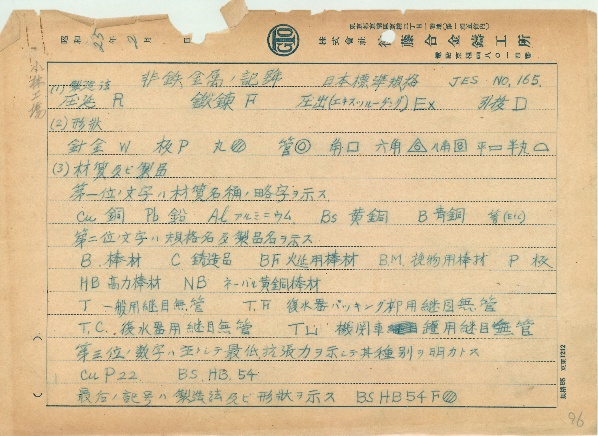 東京都京橋区宝町二丁目一番地(第一相互館内)
昭和 25年 2月 日 GTO 株式会社 後藤合金鋳工所
電話京橋四八〇一番
小林工場
非鉄金属ノ記号 日本標準規格 JES NO.165.
(1)製造法
圧延 R 鍛錬 F 圧出(エキスツルーヂング)Ex 引抜 D
(2)形状
針金 W 板P 丸 管◎ 角□ 六角 八角 平▭ 半丸
(3)材質及ビ製品
第一位ノ文字ハ材質名称ノ略字ヲ示ス
Cu 銅 Pb 鉛 AL アルミニウム Bs 黄銅 B 青銅 等(Etc)
第二位ノ文字ハ規格名及製品名ヲ示ス
B. 棒材 C 鋳造品 BF 火延用棒材 BM. 挽物用棒材 P 板
HB 高力棒材 NB ネーバル黄銅棒材
T 一般用継目無管 T.F 復水器パッキング押用継目無管
T.C. 復水器用継目無管 TL 機関車 用継目無管
第三位ノ数字ハ主トシテ最低抗張力ヲ示シテ其種別ヲ明カトス
Cu P 22. BS. HB. 54
最后ノ記号ハ製造法及ビ形状ヲ示ス BS HB 54 F
96